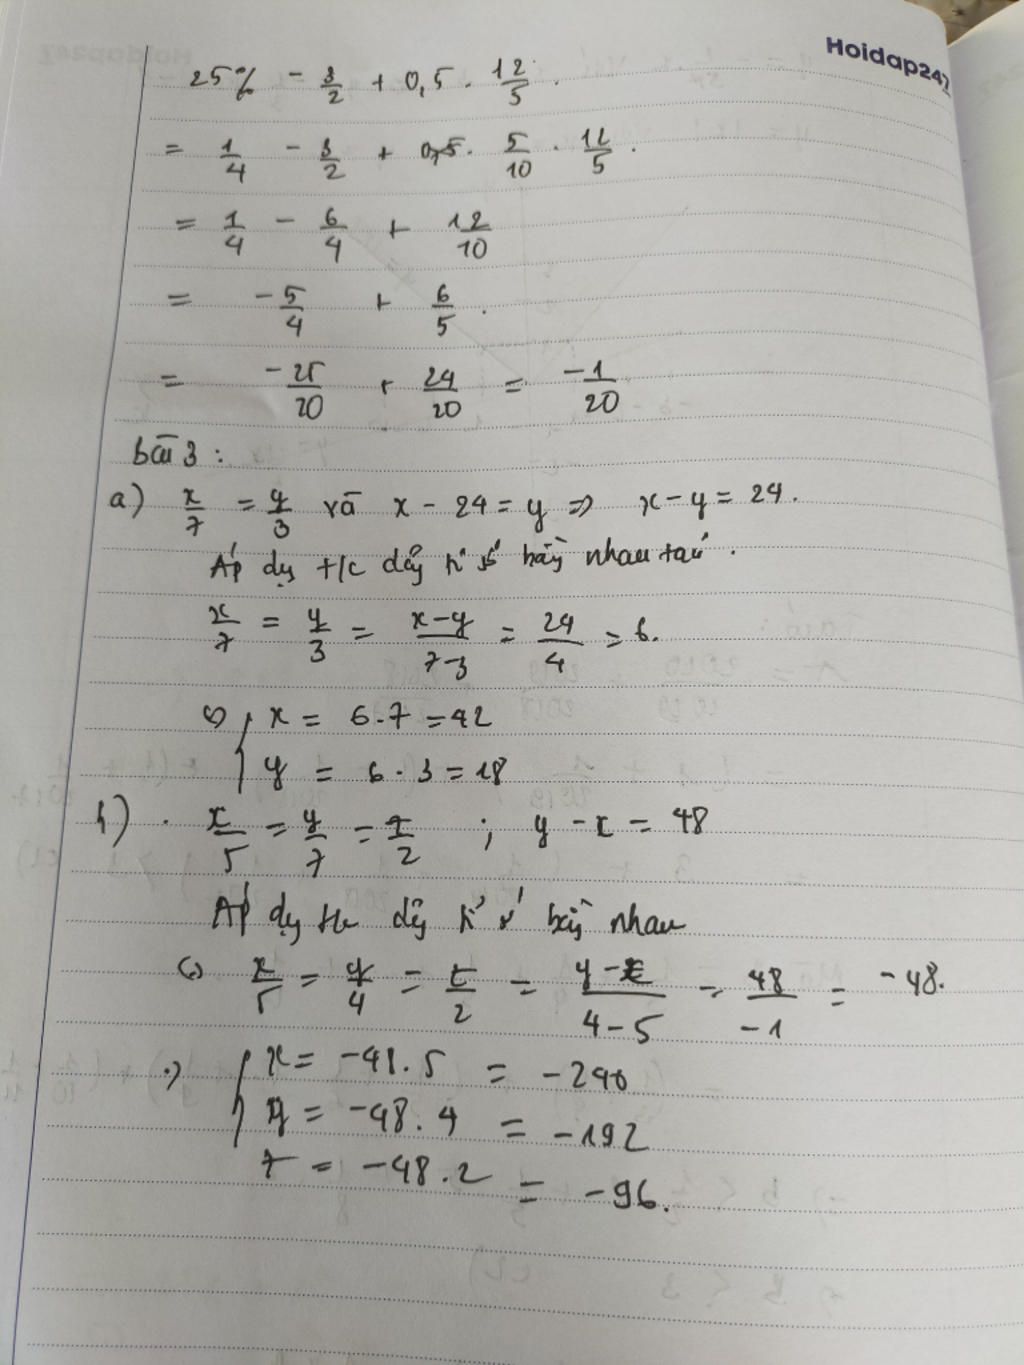 Hoidap247
25% - 3/2 + 0,5 . 12/5 .
= 1/4 - 3/2 + 5/10 . 12/5 .
= 1/4 - 6/4 + 12/10
= -5/4 + 6/5 .
= -25/20 + 24/20 = -1/20
bài 3 :
a) x/7 = y/3 và x - 24 = y => x - y = 24 .
Áp dụ t/c dãy tỉ số bằng nhau ta có .
x/7 = y/3 = x-y/7-3 = 24/4 = 6.
{ x = 6.7 = 42
y = 6.3 = 18
b) . x/5 = y/7 = z/2 ; y - x = 48
Áp dụ t/c dãy tỉ số bằng nhau
x/5 = y/4 = z/2 = y-x/4-5 = 48/-1 = -48.
{ x = -48.5 = -240
y = -48.4 = -192
z = -48.2 = -96.